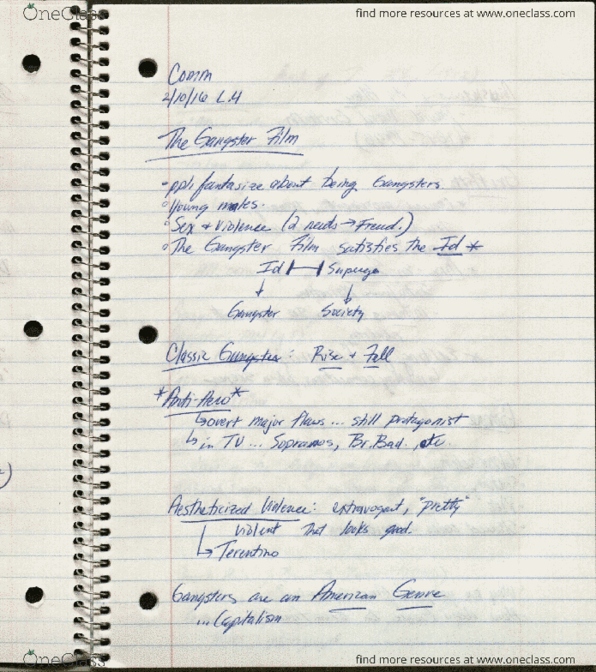 OneClass
find more resources at www.oneclass.com
Comm
2/10/16 L.4
The Gangster Film
ppl fantasize about being Gangsters
Young males.
Sex + Violence (2 needs → Freud.)
The Gangster Film satisfies the Id *
Id Superego
↓ ↓
Gangster Society
Classic Gangster: Rise + Fall
*Anti-Hero*
↳ overt major flaws... still protagonist
↳ in TV... Sopranos, Br. Bad., etc.
Aestheticized Violence: extravagent, "pretty"
violent that looks good.
↳ Terentino
Gangsters are an American Genre
...Capitalism
OneClass
find more resources at www.oneclass.com